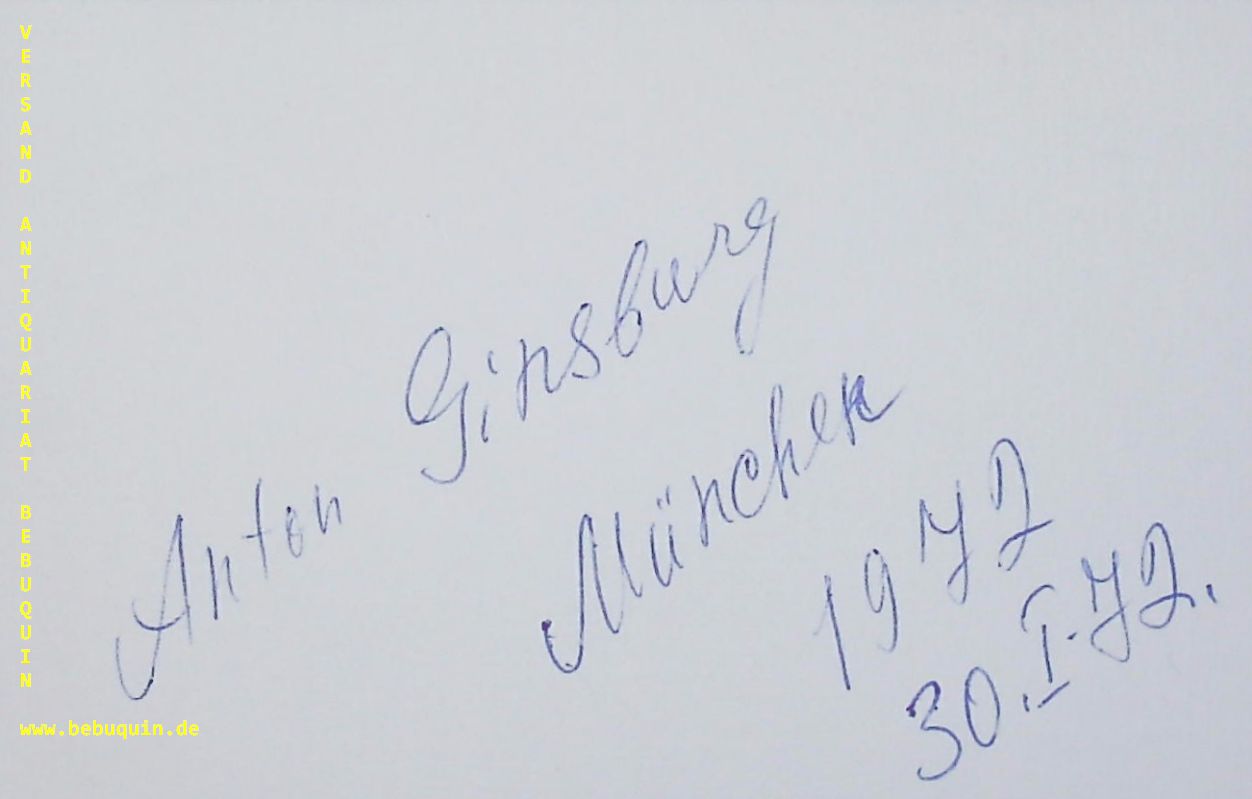 VERSAND ANTIQUARIAT BEBUQUIN
www.bebuquin.de
Anton Ginsburg
München
1972
30.I.72.